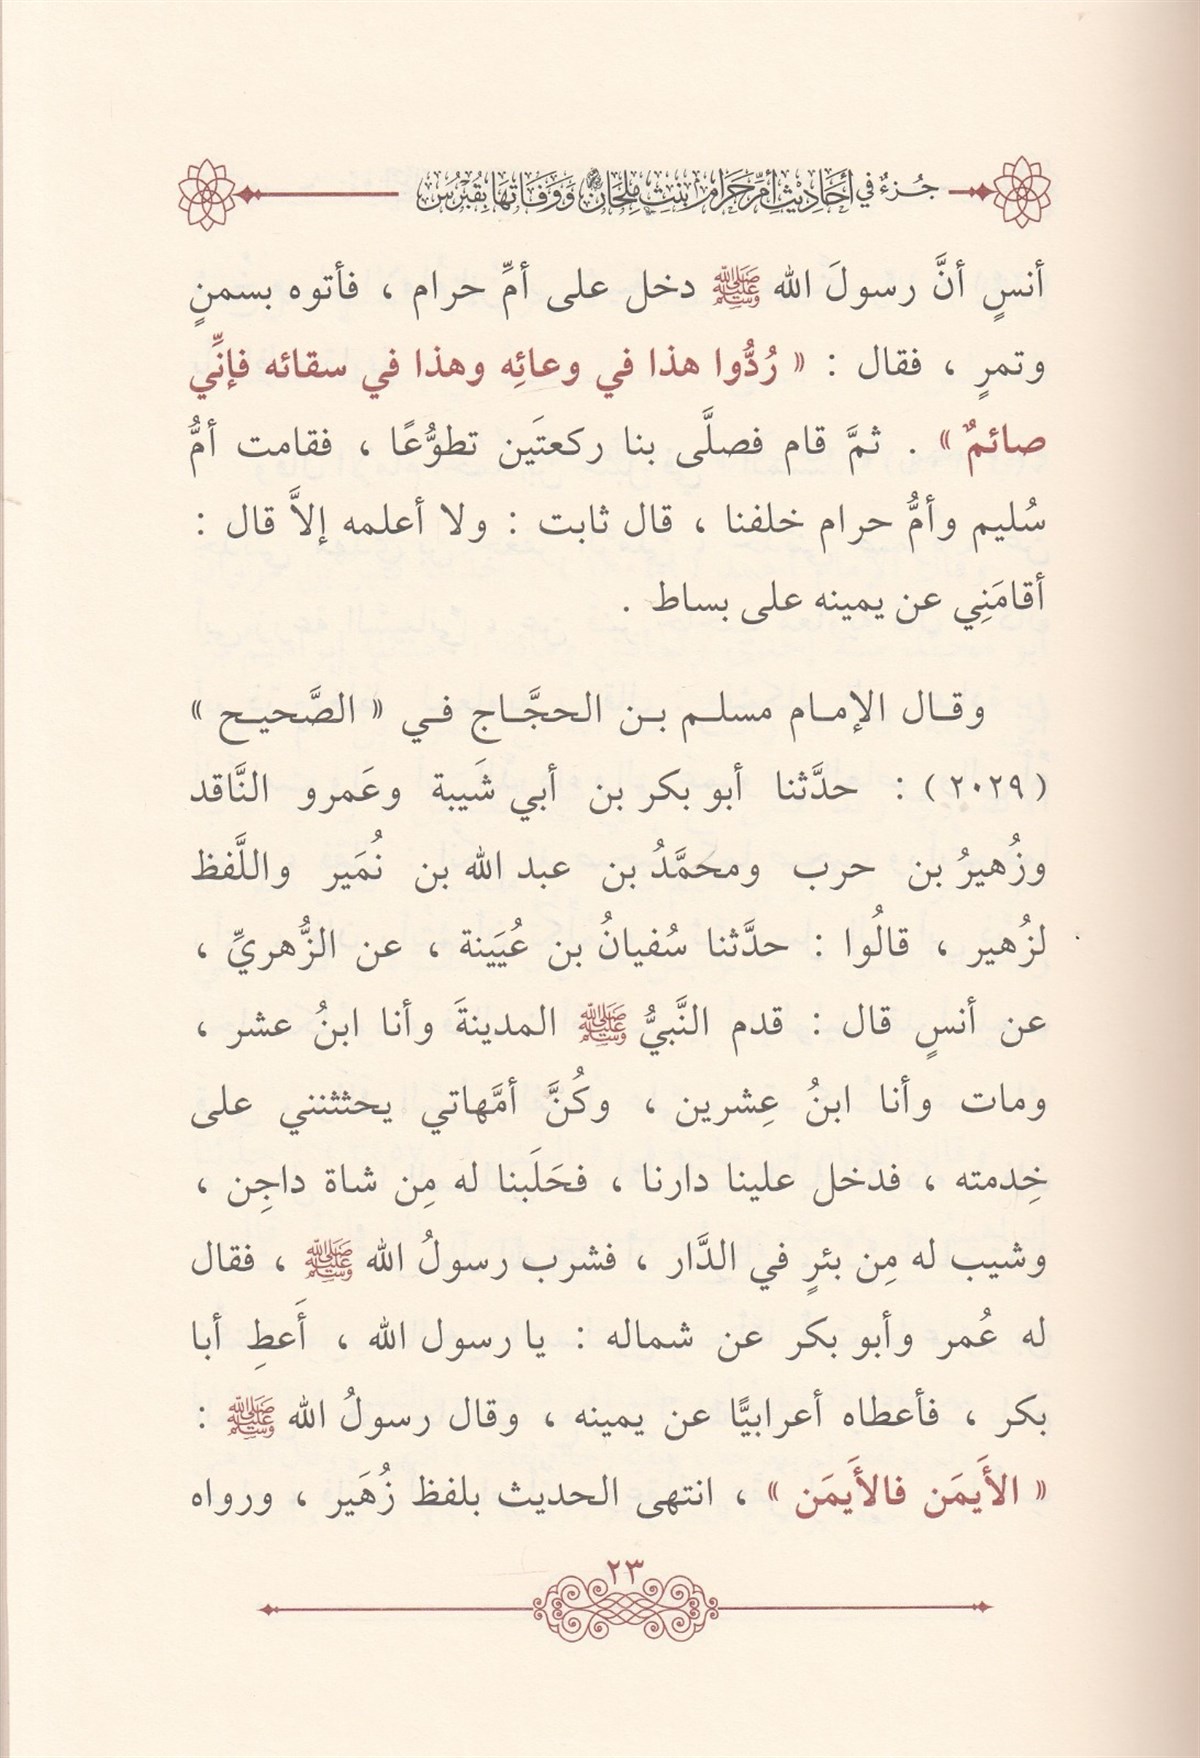 جُزءٌ في أحَادِيثِ أمِّ حَرَامٍ بنتِ مِلْحَانَ وَوَفَاتِهَا بِقُبْرُس
أنسٍ أنَّ رسولَ الله ﷺ دخل على أمِّ حرام ، فأتوه بسمنٍ
وتمرٍ ، فقال : « رُدُّوا هذا في وعائِه وهذا في سقائه فإنِّي
صائمٌ » . ثمَّ قام فصلَّى بنا ركعتَين تطوُّعًا ، فقامت أمُّ
سُليم وأمُّ حرام خلفنا ، قال ثابت : ولا أعلمه إلاَّ قال :
أقامَنِي عن يمينه على بساط .
وقال الإمام مسلم بن الحجَّاج في « الصَّحيح »
( ٢٠٢٩ ) : حدَّثنا أبو بكر بن أبي شَيبة وعَمرو النَّاقد
وزُهيرُ بن حرب ومحمَّدُ بن عبد الله بن نُمَير واللَّفظ
لزُهير ، قالُوا : حدَّثنا سُفيانُ بن عُيَينة ، عن الزُّهريِّ ،
عن أنسٍ قال : قدم النَّبيُّ ﷺ المدينةَ وأنا ابنُ عشر ،
ومات وأنا ابنُ عِشرين ، وكُنَّ أمَّهاتي يحثثنني على
خِدمته ، فدخل علينا دارنا ، فحَلَبنا له مِن شاة داجِن ،
وشيب له مِن بئرٍ في الدَّار ، فشرب رسولُ الله ﷺ ، فقال
له عُمر وأبو بكر عن شماله : يا رسول الله ، أَعطِ أبا
بكر ، فأعطاه أعرابيًّا عن يمينه ، وقال رسولُ الله ﷺ :
« الأَيمَن فالأَيمَن » ، انتهى الحديث بلفظ زُهَير ، ورواه
٢٣